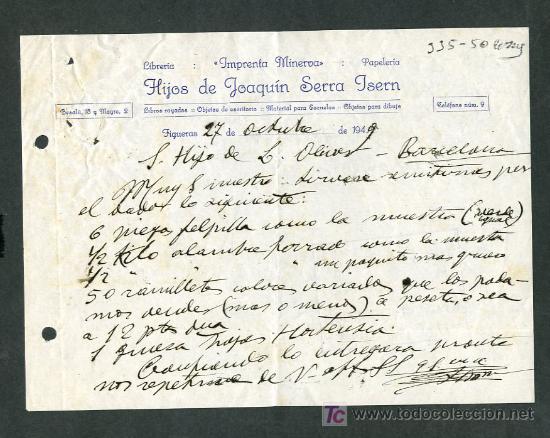 335-50
Librería : «Imprenta Minerva» : Papelería
Hijos de Joaquín Serra Isern
Besalú, 18 y Mayre, 2
Libros rayados :: Objetos de escritorio :: Material para Escuelas :: Objetos para dibujo
Teléfono núm. 9
Figueras 27 de octubre de 1949
S. Hijo de L. Olivas - Barcelona
Muy S nuestro: sirvase remitirnos por
el dador lo siguiente:
6 piezas felpilla como la muestra (verde igual)
1/2 kilo alambre forrado como la muestra
1/2 " " " un poquito mas grueso
50 ramilletes variado que los poda-
mos vender (mas o menos) a peseta, o sea
a 12 pts dna
1 gruesa hojas Hortensia.
lo entregara pronto
nos de V. aff SS q e m
todocoleccion.net